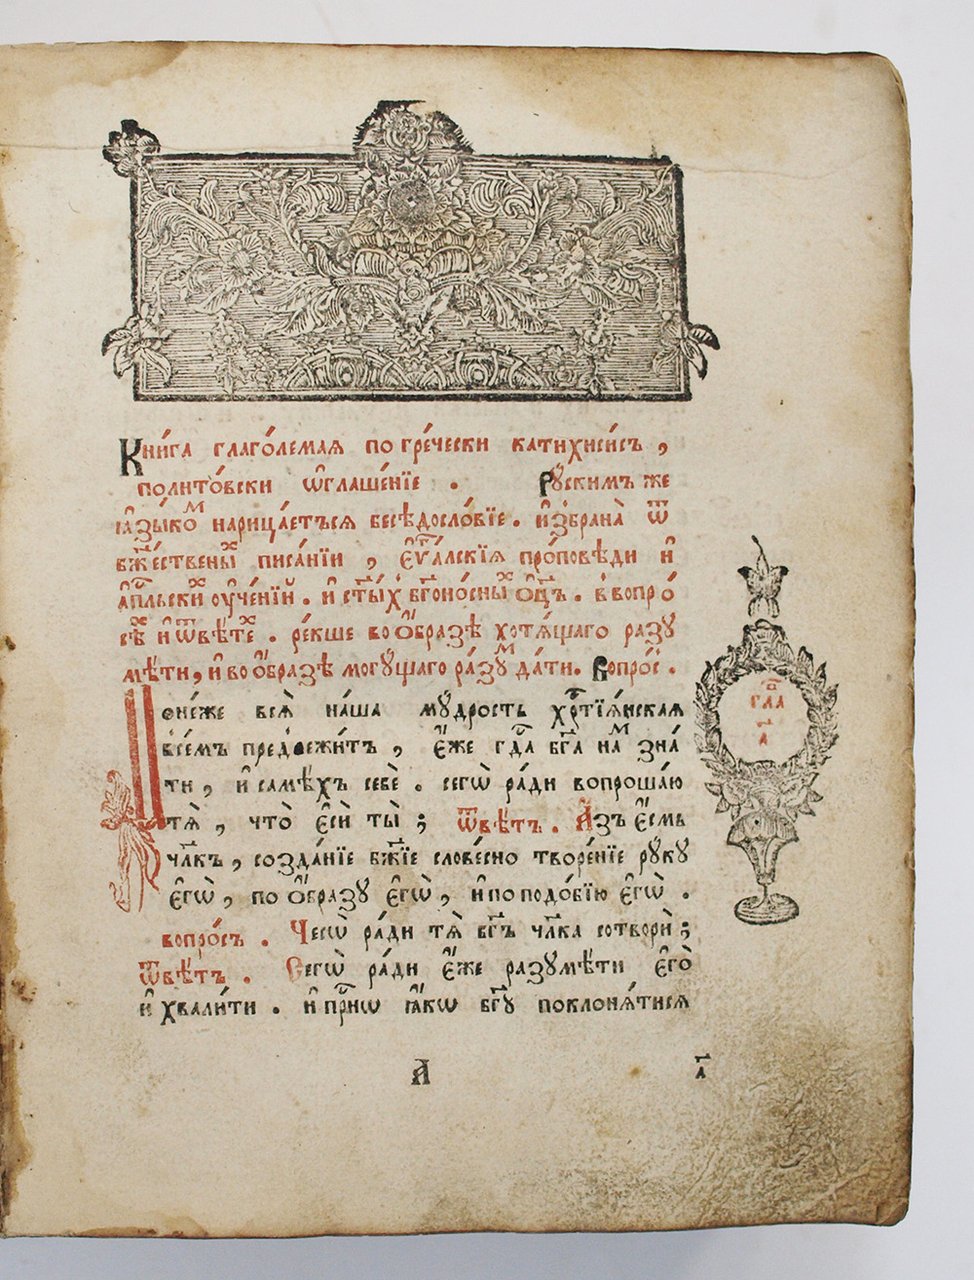 Кни́га глаго́лемая по гре́чески катихи́сисъ ,
полито́вски ѡ҆глаше́нїе . Рꙋ́скимъ же
ꙗ҆зы́коⷨ нарица́етъсѧ бесѣдосло́вїе . и҆збрана̀ ѿ
бж҃е́ственыⷯ писа́нїи , є҆ѵⷢ҇а́лскїѧ про́повѣди и҆
а҆пⷭ҇льскиⷯ ᲂу҆че́нїй . и҆ ст҃ы́хъ бг҃оно́сныⷯ ѻ҆ц҃ъ . в̾ вопро́
сѣⷯ и҆ ѿвѣ́теⷯ . ре́кше во ѻ҆́бразѣ хотѧ́щаго разꙋ
мѣ́ти , и҆ во ѻ҆́бразѣ могꙋ́щаго ра́зꙋⷨ да́ти . Вопро́с .
Поне́же всѧ̀ на́ша мꙋ́дрость хрⷭ҇тїѧ́нская
всѣ́мъ предлежи́тъ , є҆́же гдⷭ҇а бг҃а на́мⷨ зна́
ти , и҆ самѣ́хъ себѐ . сегѡ̀ ра́ди вопроша́ю
тѧ̀ , что̀ є҆сѝ ты̀ ; Ѿвѣ́тъ . А҆́зъ є҆́смь
чл҃къ , созда́нїе бж҃їе слове́сно творе́нїе рꙋкꙋ̀
є҆гѡ̀ , по ѻ҆́бразꙋ є҆гѡ̀ , и҆ по подо́бїю є҆гѡ̀ .
вопро́съ . Чесѡ̀ ра́ди тѧ̀ бг҃ъ чл҃ка сотворѝ ;
Ѿвѣ́тъ . Сегѡ̀ ра́ди є҆́же разꙋмѣ́ти є҆го̀
и҆ хвали́ти . и҆ при́снѡ ꙗ҆́кѡ бг҃ꙋ поклонѧ́тисѧ
глаⷡ҇
а҃
А
а҃